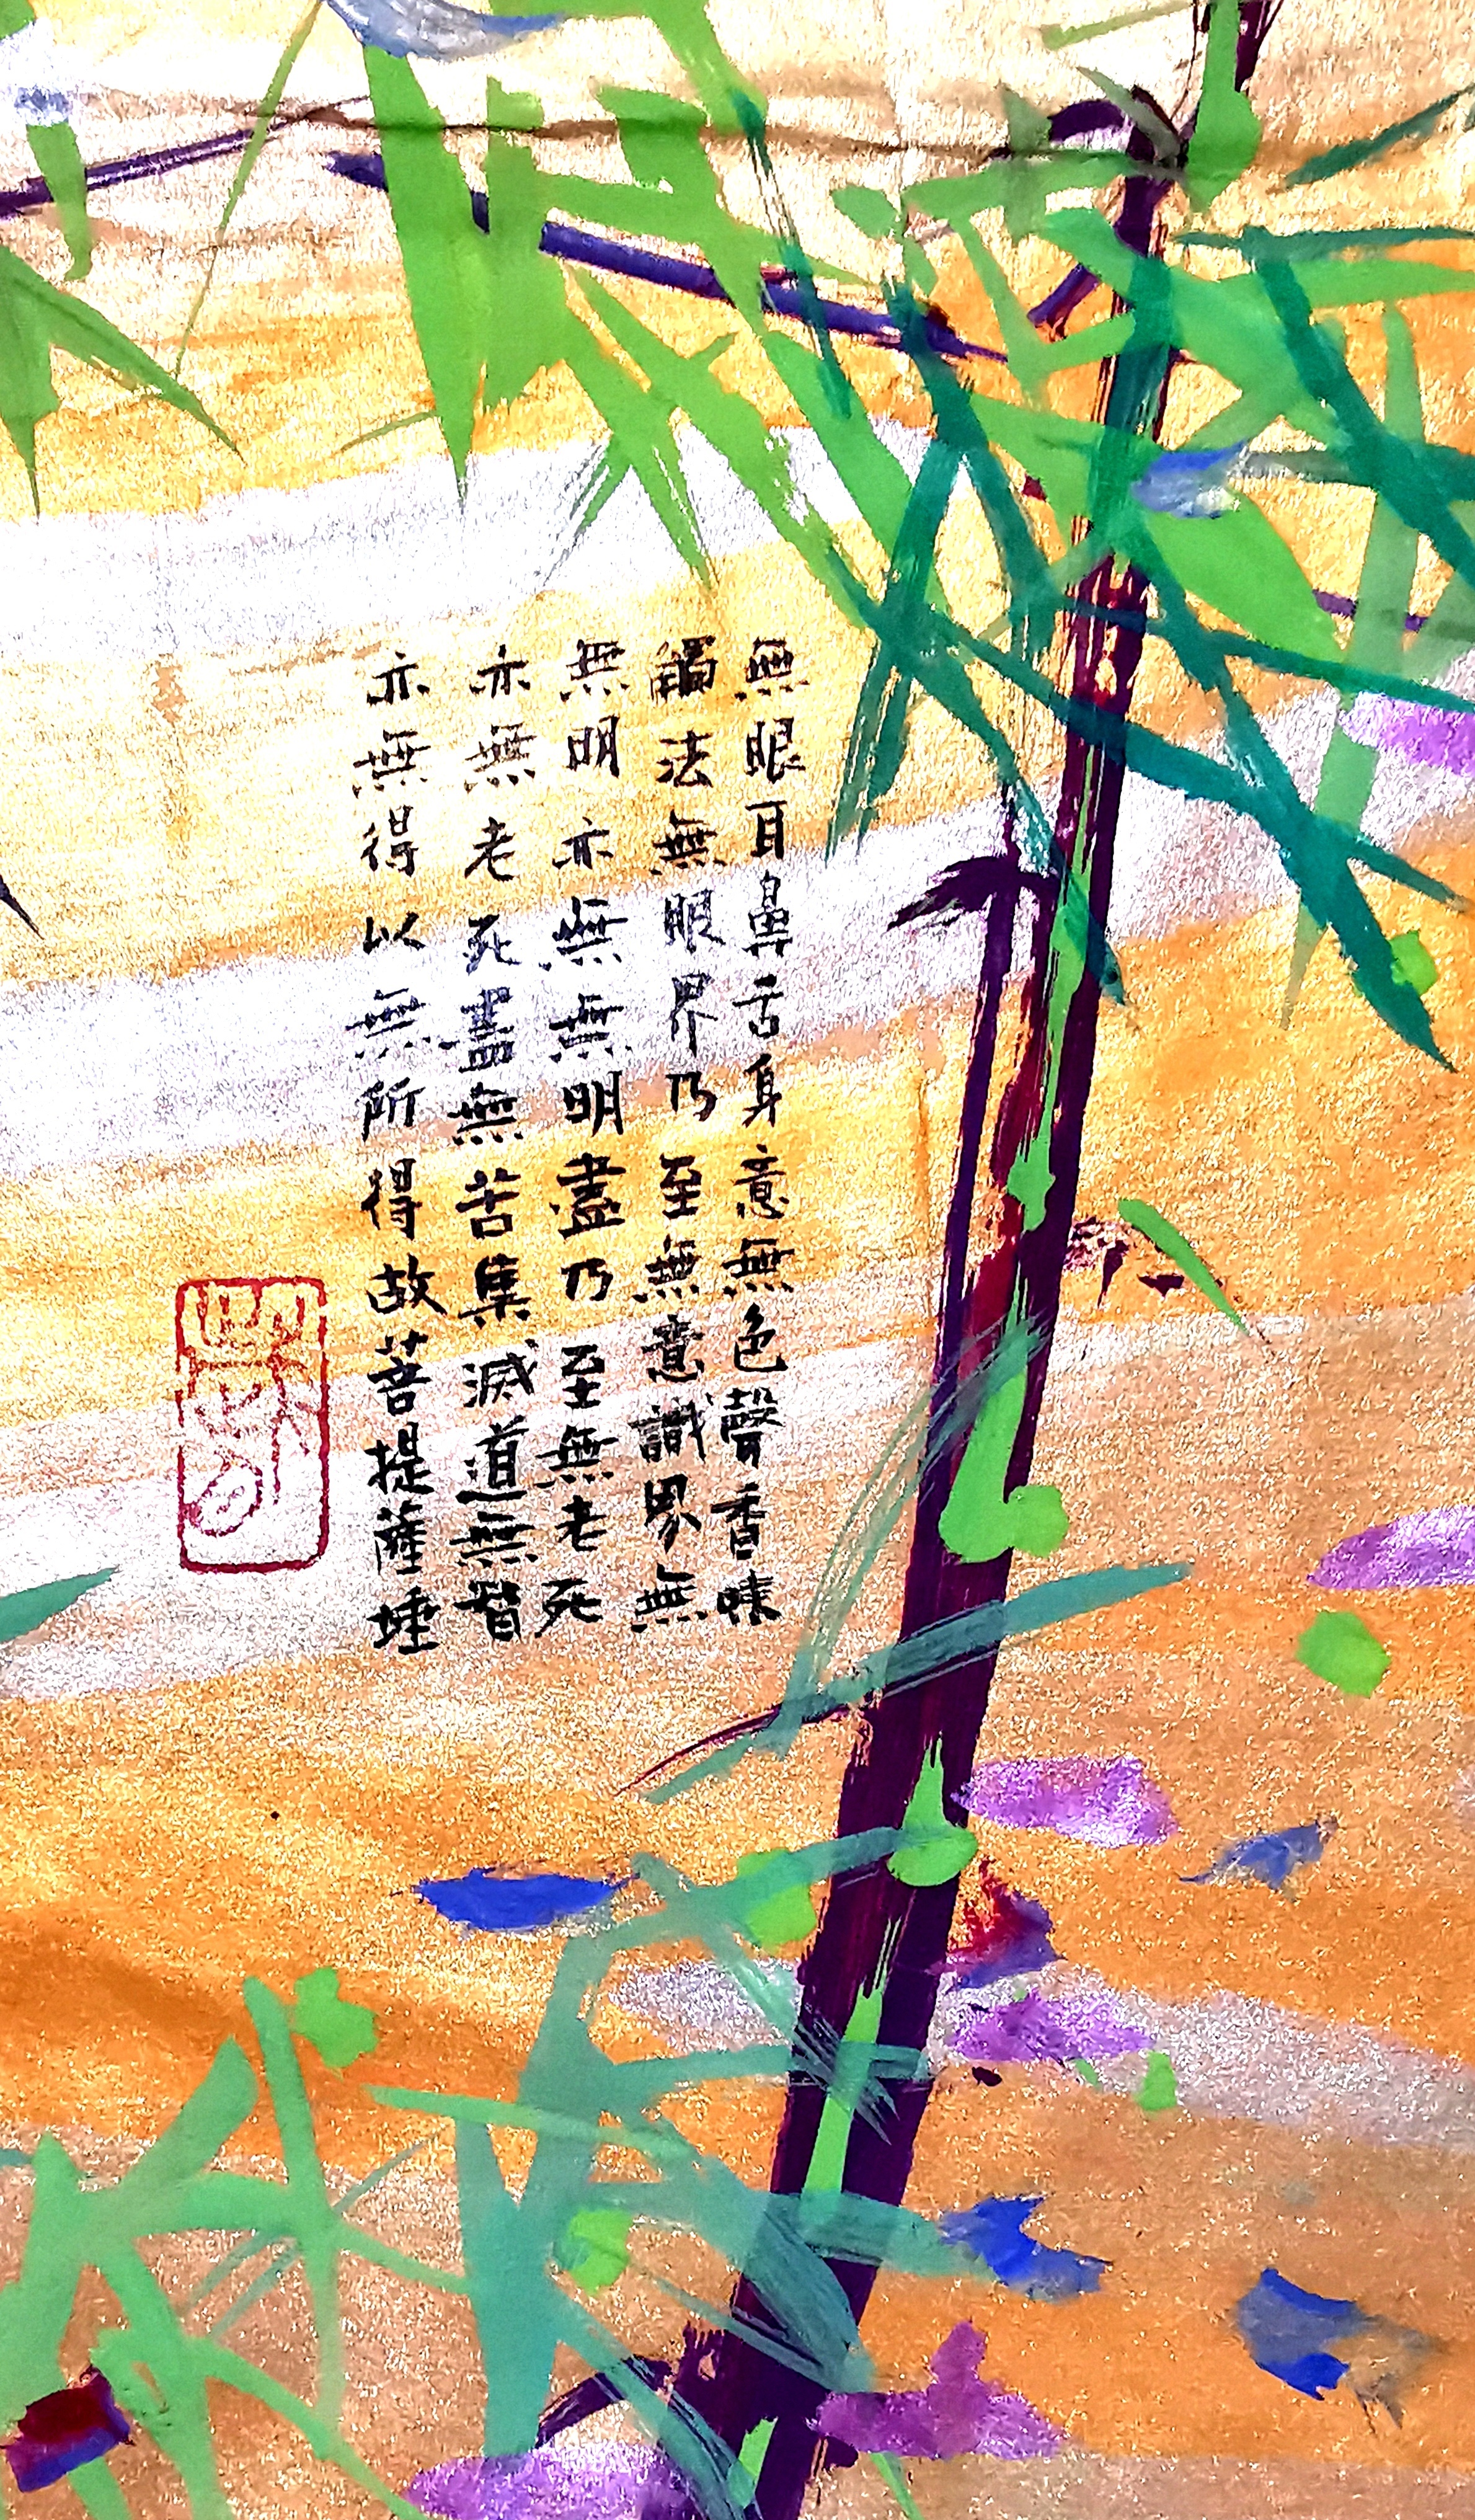 無眼耳鼻舌身意無色聲香味
觸法無眼界乃至無意識界無
無明亦無無明盡乃至無老死
亦無老死盡無苦集滅道無智
亦無得以無所得故菩提薩埵